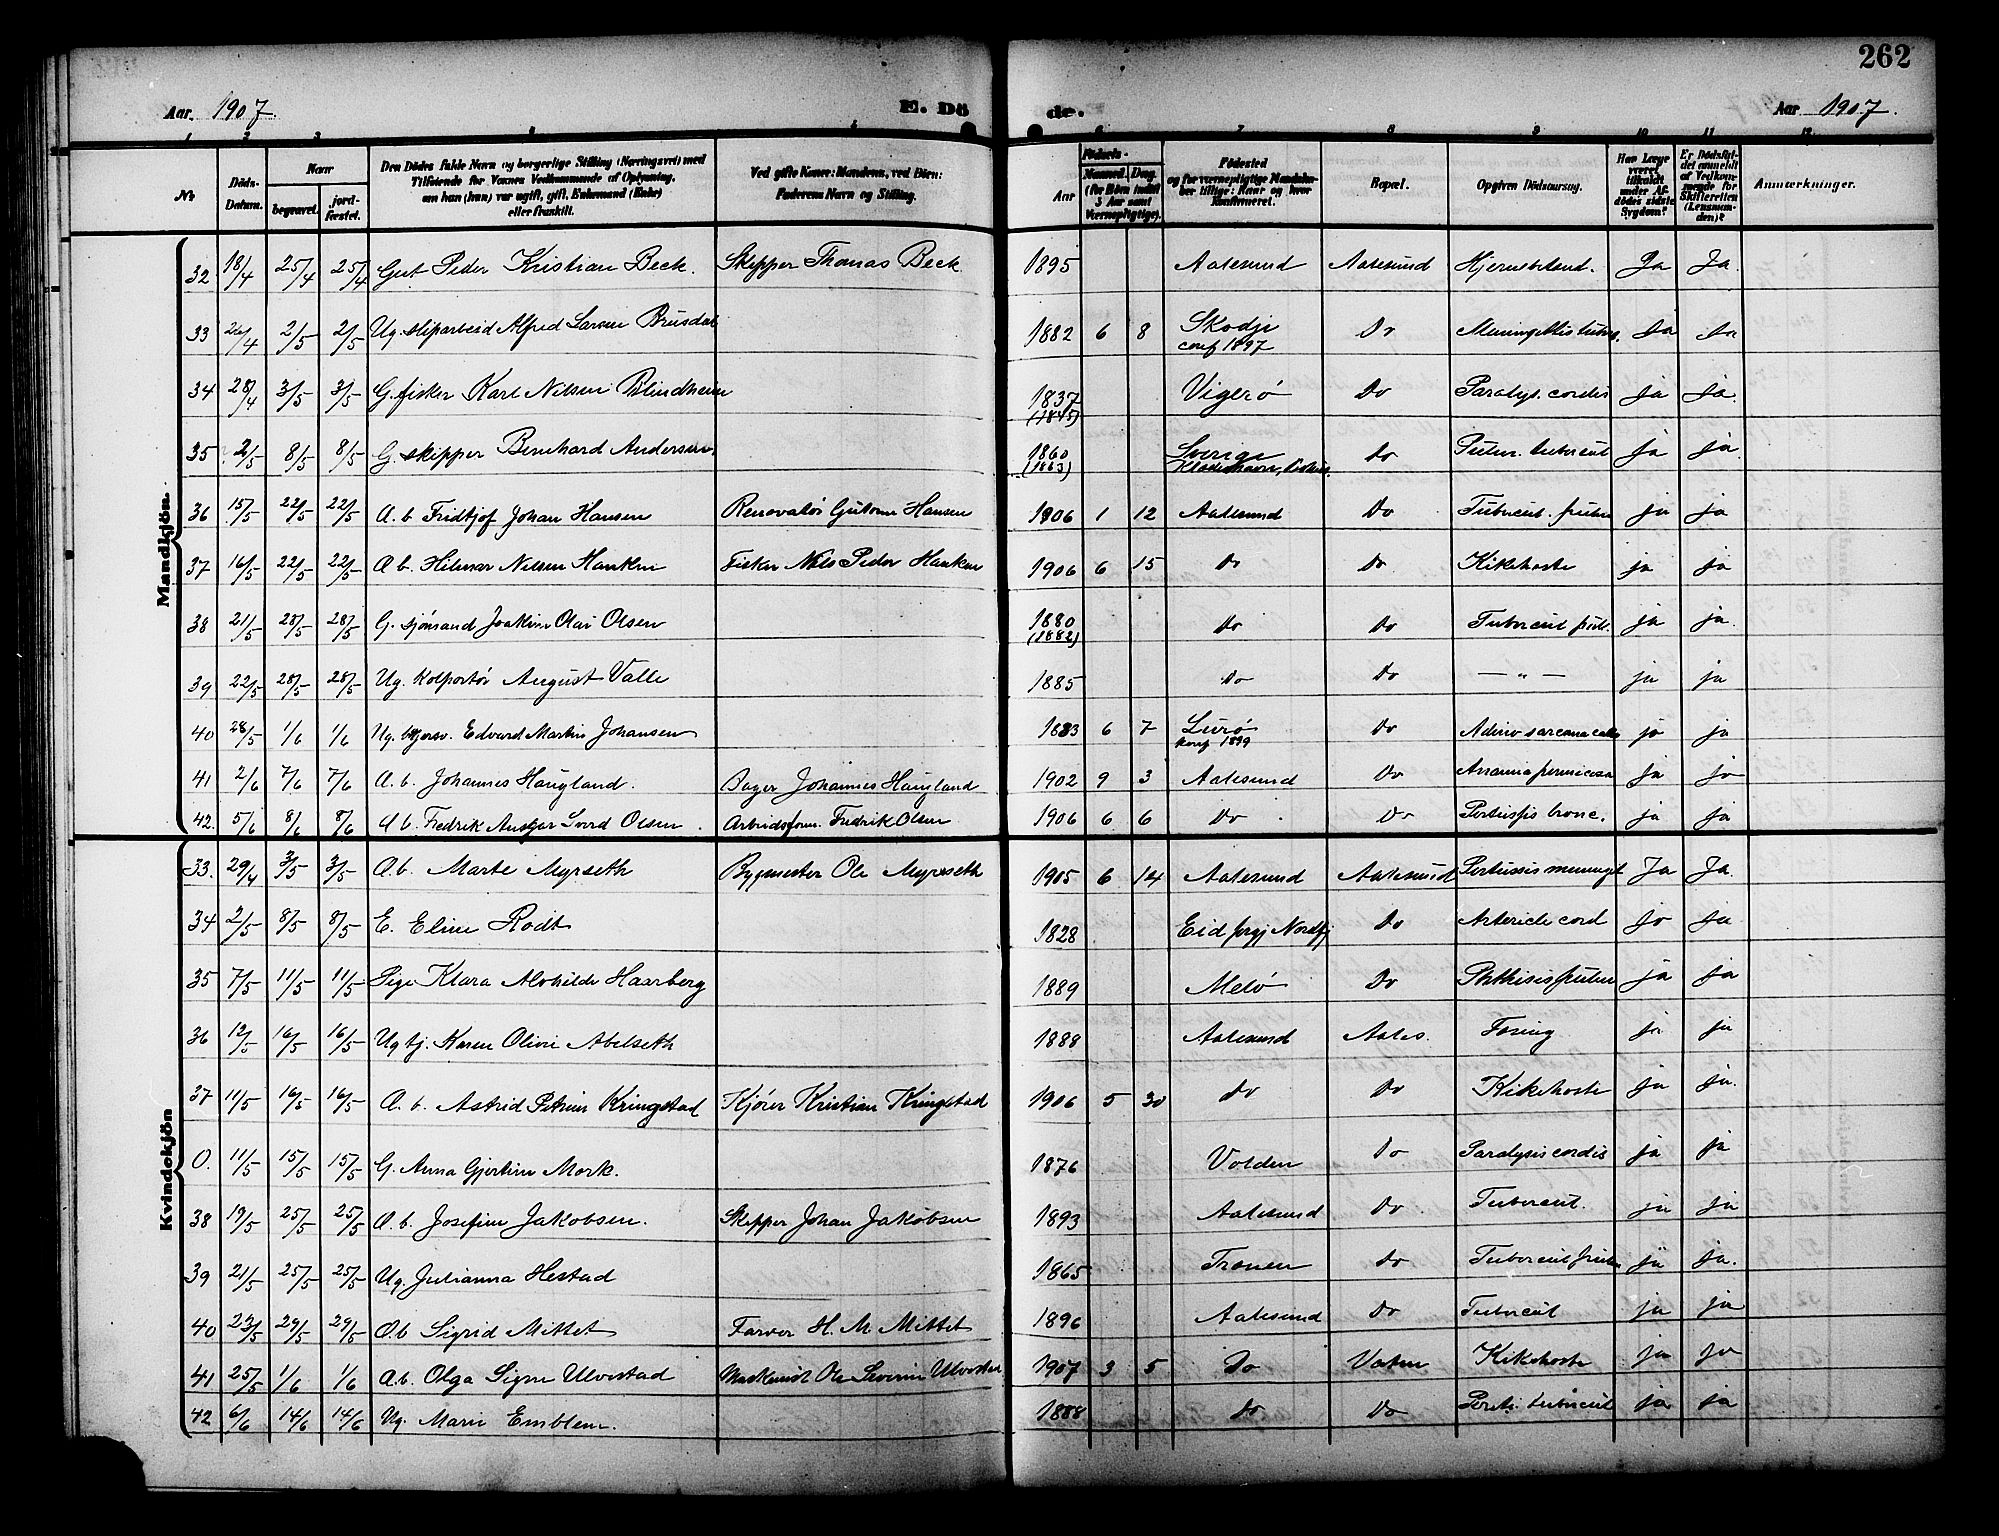 262
Aar 1907. E. Dö de. Aar 1907.
1 2 3 4 5 6 7 8 9 10 11 12
No. Döds-Datum. Naar begravet. jordfæstet. Den Dödes fulde Navn og borgerlige Stilling (Næringsvei) med Tilføiende for Voxnes Vedkommende af Oplysning, om han (hun) var ugift, gift, Enkemand (Enke) eller fraskilt. Ved gifte Koner: Mandens, ved Børn: Faderens Navn og Stilling. Fødsels- Aar Maaned. Dag. (for Børn indtil 5 Aar samt Værnepligtige). Födested og for værnepligtige Mandskaber tillige: Naar og hvor konfirmeret. Bopæl. Opgiven Dödsaarsag. Har Læge været tilkaldt under Afdödes sidste Sygdom? Er Dödsfaldet anmeldt af Vedkommende for Skifteretten (Lensmanden)? Anmærkninger.
Mandkjön.
32 18/4 25/4 25/4 Gut Peder Kristian Beck. Skipper Thomas Beck. 1895 Aalesund Aalesund Ja Ja.
33 26/4 2/5 2/5 Ug. sliparbeid Alfred Larsen Brusdal 1882 6 8 Skodje conf 1897 Do Meningitis tuberc. Ja Ja
34 28/4 3/5 3/5 G. fisker Karl Nilsen Blindheim 1837 (1845) Vigerø Do Paralys. cordis ja ja.
35 2/5 8/5 8/5 G. skipper Bernhard Andersen 1860 (1863) Sverige Do Pulm. tubercul ja ja
36 15/5 22/5 22/5 A. b Fridtjof Johan Hansen Renovatør Guttorm Hansen 1906 1 12 Aalesund Do Tubercul. pulm ja ja
37 16/5 22/5 22/5 A. b. Hilmar Nilsen Hanken Fisker Nils Peder Hanken 1906 6 15 Do Do Kikehoste ja ja
38 21/5 28/5 28/5 G. sjømand Joakim Olai Olsen 1880 (1882) Do Do Tubercul pul. ja ja.
39 22/5 28/5 28/5 Ug. Kolportør August Valle 1885 Do Do — " — ja ja
40 28/5 1/6 1/6 Ug. Edvard Martin Johansen 1883 6 7 Lurø konf 1899 Do ja ja
41 2/6 7/6 7/6 A. b. Johannes Haugland. Bager Johannes Haugland 1902 9 3 Aalesund Do Anæmia perniciosa ja ja
42. 5/6 8/6 8/6 A b. Fredrik Olsen. Arbeidsform. Fredrik Olsen 1906 6 6 Do Do Pertussis bronc. ja ja
Kvindekjön
33. 29/4 3/5 3/5 A. b. Marte Myrseth Bygmester Ole Myrseth 1905 6 14 Aalesund Aalesund Pertussis meningit Ja Ja.
34 2/5 8/5 8/5 E. Eline Rodt 1828 Eid prgj Nordfj Do cord Ja ja
35 7/5 11/5 11/5 Pige Klara Alvhilde Haarberg 1889 Melø Do Phthisis pulm ja ja
36 12/5 16/5 16/5 Ug tj. Karen Olive Abelseth 1888 Aalesund Aales. ja ja
37 11/5 16/5 16/5 A. b. Astrid Petrine Kringstad Kjører Kristian Kringstad 1906 5 30 Do Do Kikehoste ja ja.
0. 11/5 15/5 15/5 G. Anna Gjertine Mork. 1876 Volden Do Paralysis cordis ja ja
38 19/5 25/5 25/5 A. b. Josefine Jakobsen. Skipper Johan Jakobsen 1893 Aalesund Do Tubercul. ja ja
39 21/5 25/5 25/5 Ug. Julianna Hestad 1865 Do Tubercul pulm ja ja.
40 23/5 29/5 29/5 A. b Sigrid Mittet Farver H. M. Mittet 1896 Aalesund Do Tubercul ja ja
41 25/5 1/6 1/6 A. b. Olga Signe Ulvestad Maskinist Ole Severin Ulvestad 1907 3 5 Do Kikehoste ja ja
42 6/6 14/6 14/6 Ug. Marie Emblem. 1888 Do Do Perit. tubercul ja ja